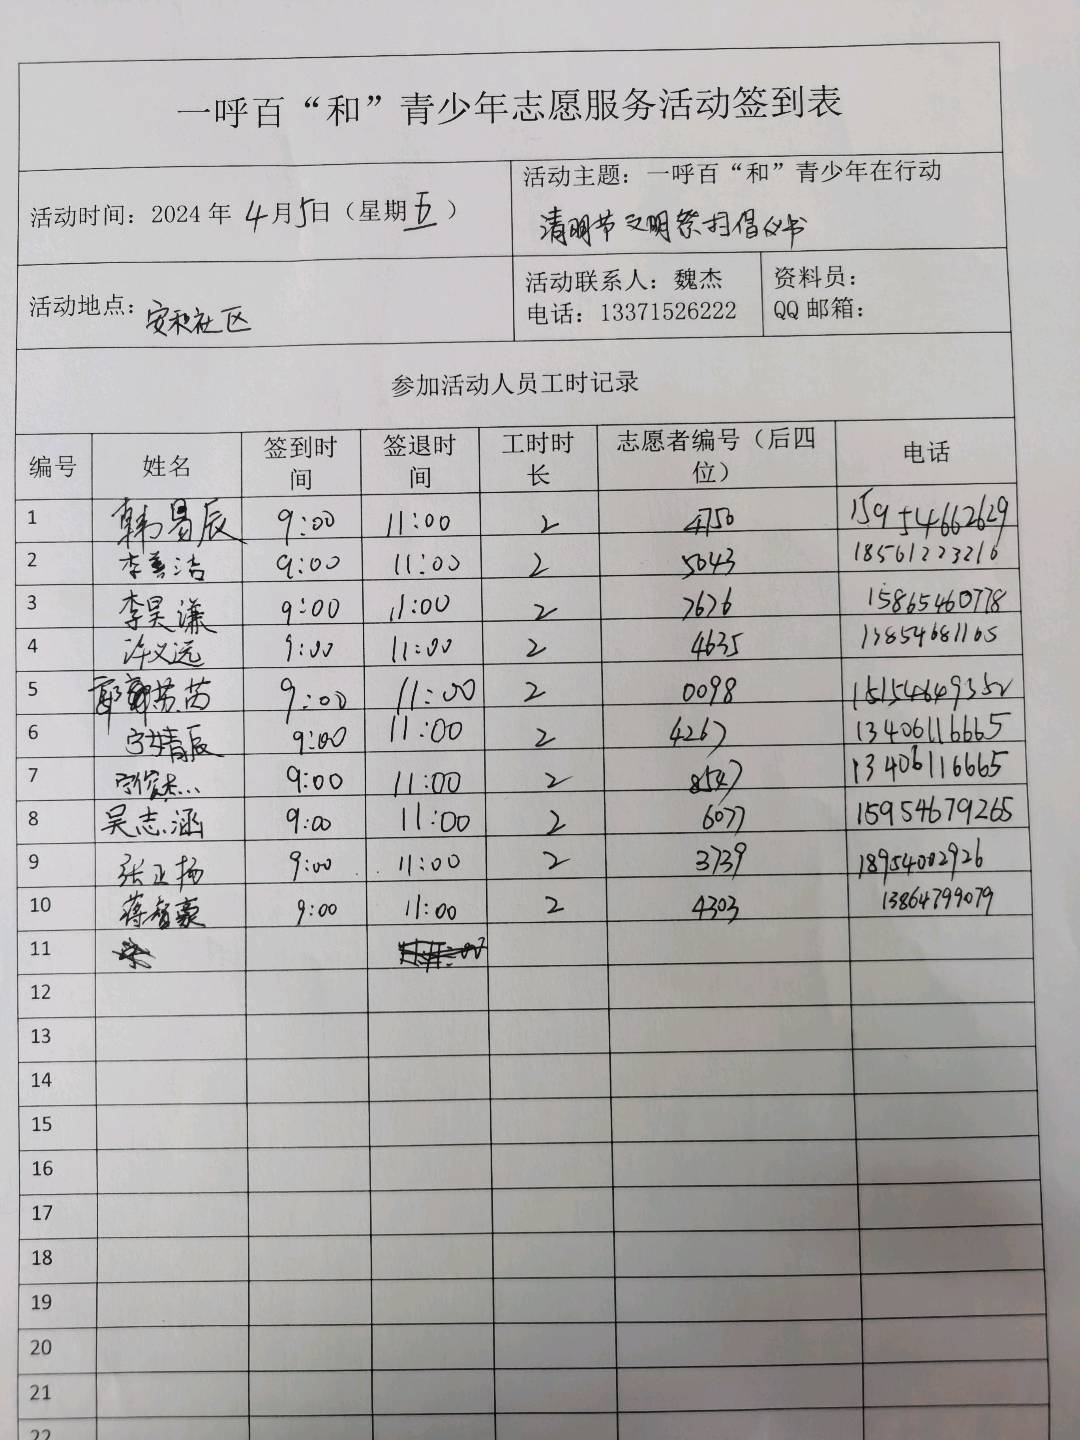 一呼百“和”青少年志愿服务活动签到表
活动时间：2024 年 4月5日（星期五）
活动主题：一呼百“和”青少年在行动
清明节文明祭扫倡议书
活动地点：安和社区
活动联系人：魏杰
电话：13371526222
资料员：
QQ 邮箱：
参加活动人员工时记录
编号 姓名 签到时间 签退时间 工时时长 志愿者编号（后四位） 电话
1 韩易辰 9:00 11:00 2 4750 15954662629
2 李善洁 9:00 11:00 2 5043 18561223216
3 李昊谦 9:00 11:00 2 7676 15865460778
4 许义远 9:00 11:00 2 4635 13854681165
5 9:00 11:00 2 0098 15154649352
6 宁靖辰 9:00 11:00 2 4267 13406116665
7 9:00 11:00 2 8547 13406116665
8 吴志涵 9:00 11:00 2 6077 15954679265
9 张正扬 9:00 11:00 2 3739 18954002926
10 蒋智豪 9:00 11:00 2 4303 13864799079
11
12
13
14
15
16
17
18
19
20
21
22